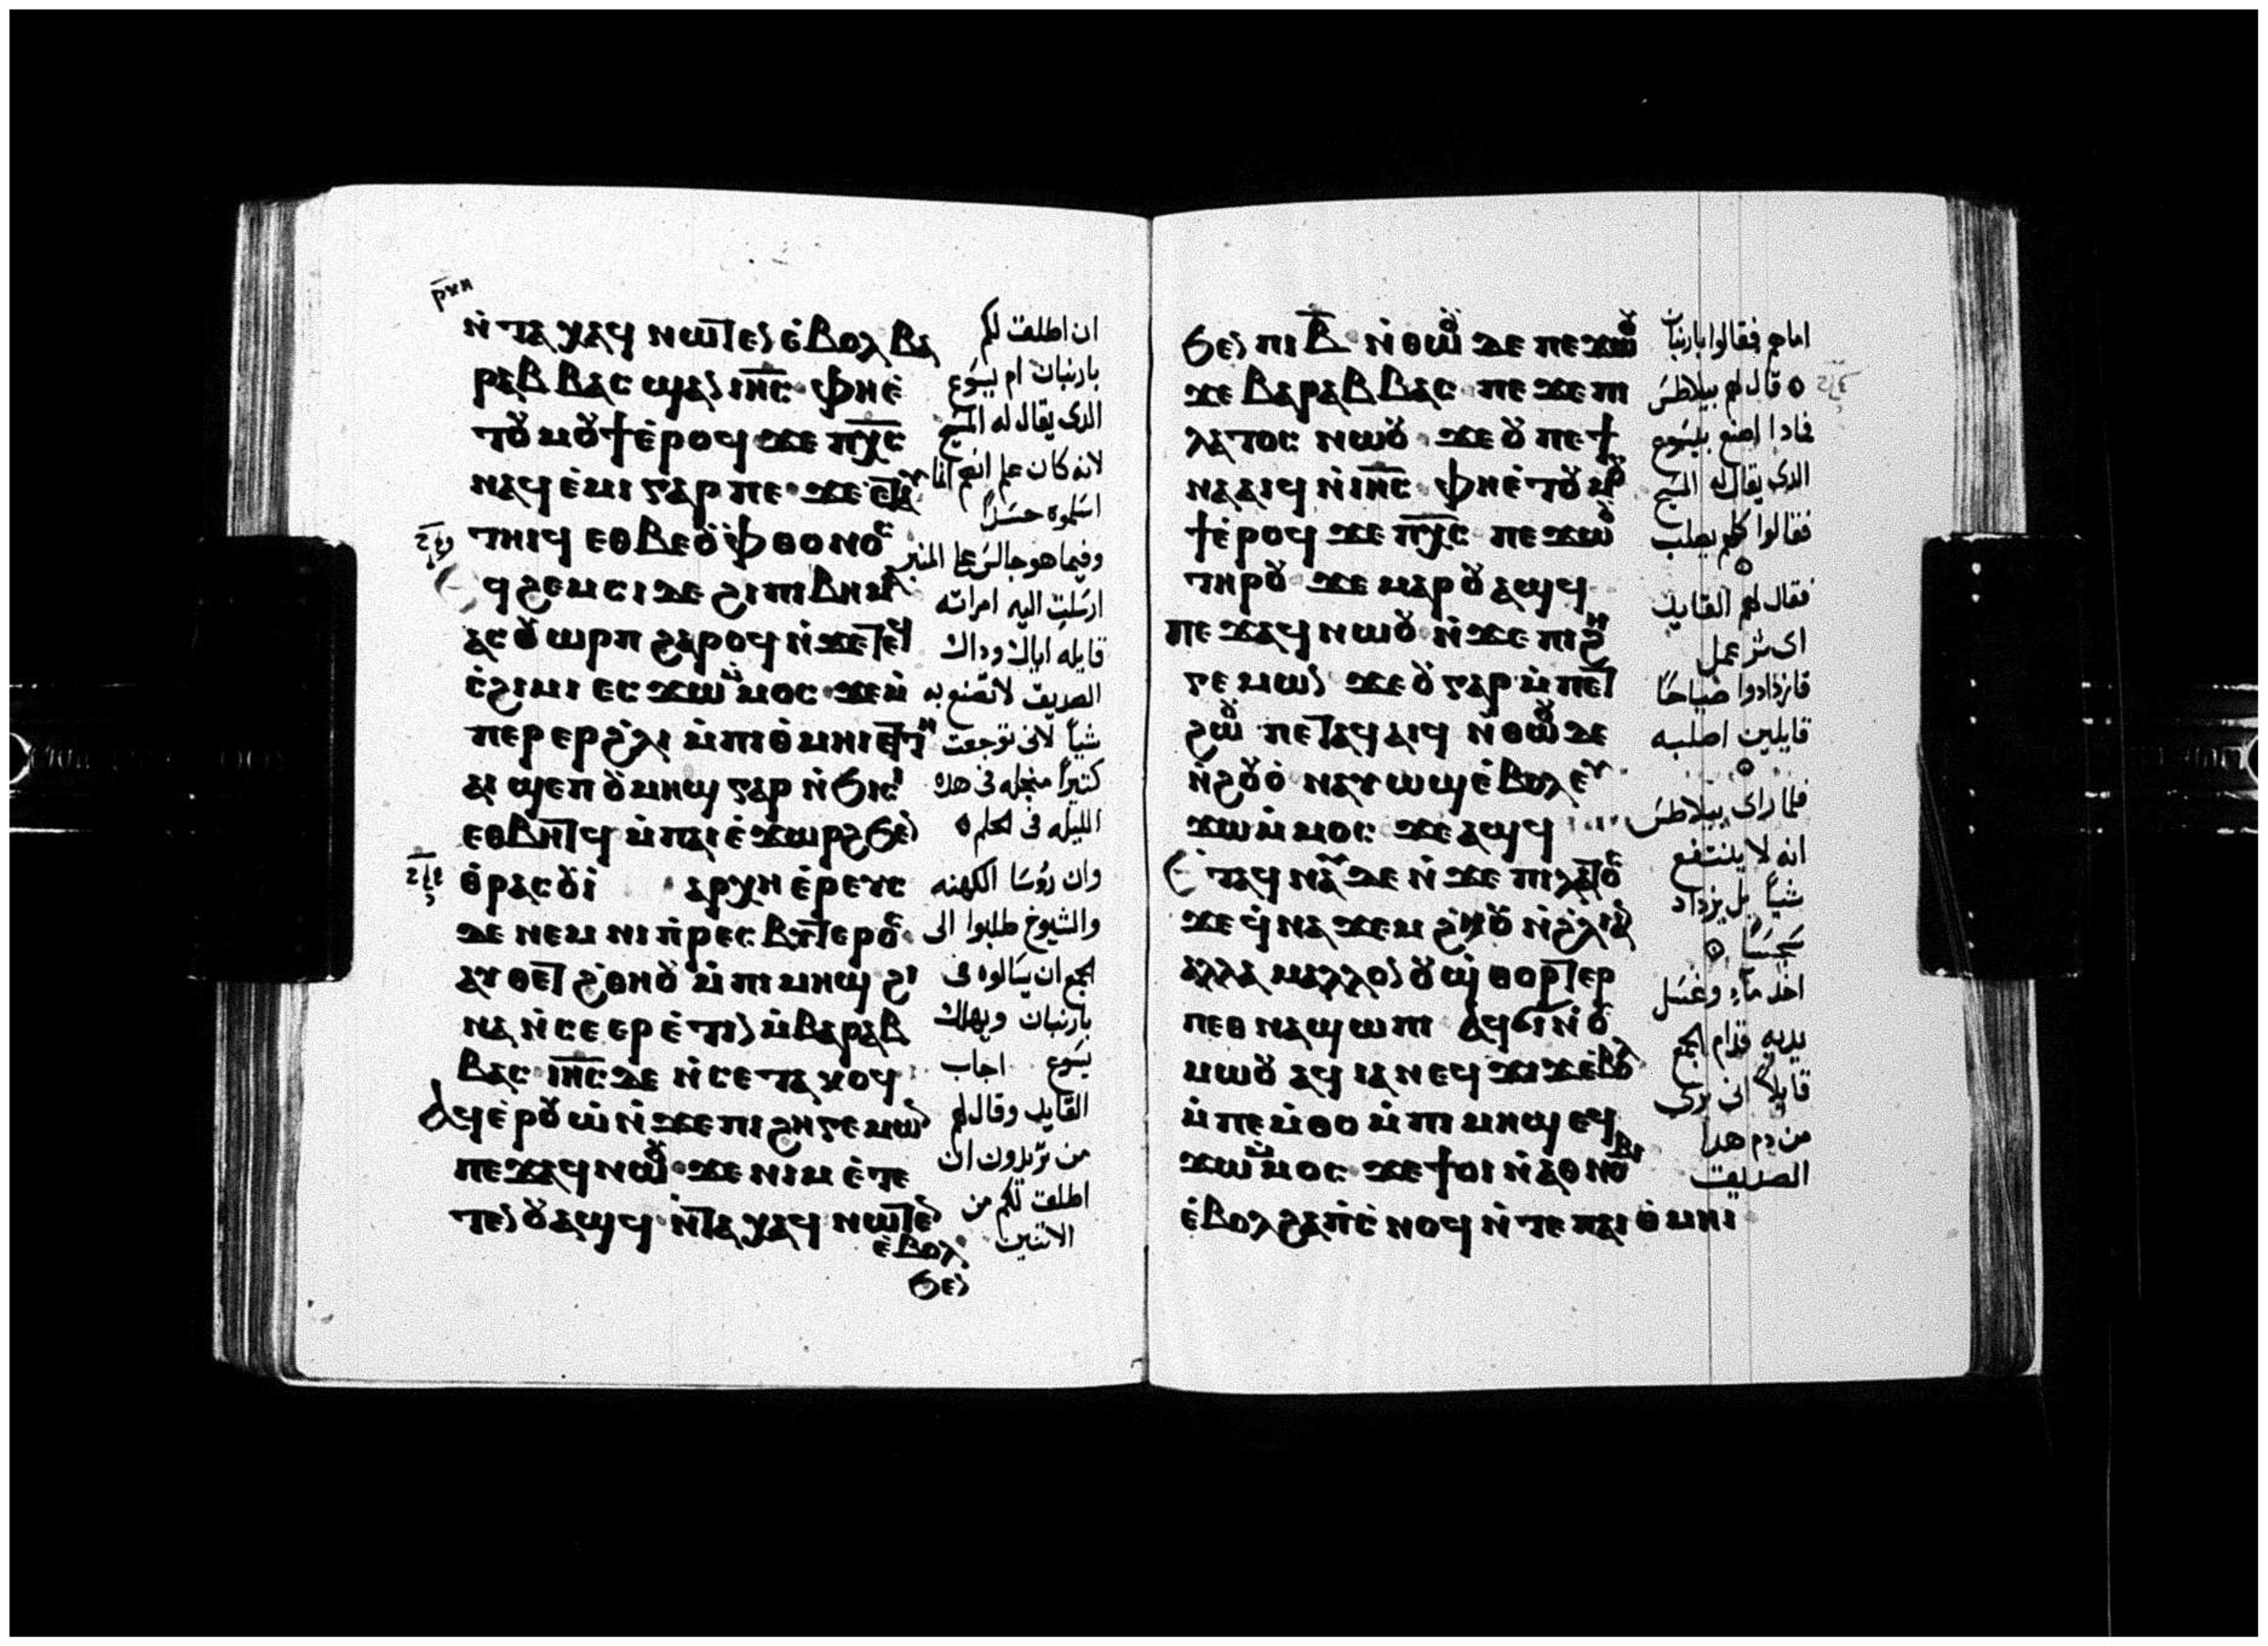 ⲣ̅ⲕⲏ
ⲛ̀ⲧⲁⲭⲁϥ ⲛⲱⲧⲉⲛ ⲉ̀ⲃⲟⲗ ⲃⲁ
ⲣⲁⲃⲃⲁⲥ ϣⲁⲛ ⲓⲏ̅ⲥ̅ ⲫⲏⲉ̀
ⲧⲟⲩⲙⲟⲩϯ ⲉ̀ⲣⲟϥ ϫⲉ ⲡⲭ̅ⲥ̅
ⲛⲁϥⲉ̀ⲙⲓ ⲅⲁⲣ ⲡⲉ ϫⲉ ⲉⲧⲁⲩ
ⲧⲏⲓϥ ⲉⲑⲃⲉ ⲟⲩⲫⲑⲟⲛⲟⲥ
ϥϩⲉⲙⲥⲓ ⲇⲉ ϩⲓ ⲡⲓⲃⲏⲙⲁ
ⲁⲥⲟⲩⲱⲣⲡ ϩⲁⲣⲟϥ ⲛ̀ϫⲉ ⲧⲉϥ
ⲥ̀ϩⲓⲙⲓ ⲉⲥϫⲱ ⲙ̀ⲙⲟⲥ ϫⲉ ⲙ̀
ⲡⲉⲣⲉⲣϩ̀ⲗⲓ ⲙ̀ⲡⲓⲑ̀ⲙⲏⲓ ⲉⲧⲏ
ⲁⲓϣⲉⲡ ⲟⲩⲙⲏϣ ⲅⲁⲣ ⲛ̀ϭⲓⲥⲓ
ⲉⲑⲃⲏⲧϥ ⲙ̀ⲡⲁⲓⲉ̀ϫⲱⲣϩ ϧⲉⲛ
ⲑ̀ⲣⲁⲥⲟⲩⲓ̀ ⲁⲣⲭⲏⲉ̀ⲣⲉⲩⲥ
ⲇⲉ ⲛⲉⲙ ⲛⲓⲡ̀ⲣⲉⲥⲃⲩⲧⲉⲣⲟⲥ
ⲁⲩⲑⲉⲧ ϩ̀ⲑⲏⲟⲩ ⲙ̀ⲡⲓⲙⲏϣ ϩⲓ
ⲛⲁ ⲛ̀ⲥⲉⲉⲣⲉ̀ⲧⲓⲛ ⲙ̀ⲃⲁⲣⲁⲃ
ⲃⲁⲥ ⲓⲏ̅ⲥ̅ ⲇⲉ ⲛ̀ⲥⲉⲧⲁⲕⲟϥ
ⲁϥⲉ̀ⲣⲟⲩⲱ̀ ⲛ̀ϫⲉ ⲡⲓϩⲏⲅⲉⲙⲱⲛ
ⲡⲉϫⲁϥ ⲛⲱⲟⲩ ϫⲉ ⲛⲓⲙ ⲉ̀ⲧⲉ
ⲧⲉⲛⲟⲩⲁϣϥ ⲛ̀ⲧⲁⲭⲁϥ ⲛⲱⲧⲉⲛ
ⲉ̀ⲃⲟⲗ
ϧⲉⲛ
ان اطلقت لكم
باربان ام يسوع
الذى يقال له المسيح
لانه كان علم انهم انما
اسلموه حسداً
وفيما هو جالس على المنبر
ارسلت اليه امراته
قايله اياك وذاك
الصديق لا تصنع به
شياً لانى توجعت
كثيراً منجله فى هذه
الليله فى الحلم
وان روسا الكهنه
والشيوخ طلبوا الى
الجمع ان يسالوه فى
باربان ويهلك
يسوع اجاب
القايد وقال لهم
من تريدون ان
اطلقت لكم من
الاثنين
ϧⲉⲛ ⲡⲓⲃ̅ ⲛ̀ⲑⲱⲟⲩ ⲇⲉ ⲡⲉϫⲱⲟⲩ
ϫⲉ ⲃⲁⲣⲁⲃⲃⲁⲥ ⲡⲉϫⲉ ⲡⲓ
ⲗⲁⲧⲟⲥ ⲛⲱⲟⲩ ϫⲉ ⲟⲩ ⲡⲉϯ
ⲛⲁⲁⲓϥ ⲛ̀ⲓⲏ̅ⲥ̅ ⲫⲏⲉ̀ⲧⲟⲩⲙⲟⲩ
ϯ ⲉ̀ⲣⲟϥ ϫⲉ ⲡⲭ̅ⲥ̅ ⲡⲉϫⲱⲟⲩ
ⲧⲏⲣⲟⲩ ϫⲉ ⲙⲁⲣⲟⲩⲁϣϥ
ⲡⲉϫⲁϥ ⲛⲱⲟⲩ ⲛ̀ϫⲉ ⲡⲓϩⲏ
ⲅⲉⲙⲱⲛ ϫⲉ ⲟⲩ ⲅⲁⲣ ⲙ̀ⲡⲉⲧ
ϩⲱⲟⲩ ⲡⲉⲧⲁϥⲁⲓϥ ⲛ̀ⲑⲱⲟⲩ ⲇⲉ
ⲛ̀ϩⲟⲩⲟ̀ ⲛⲁⲩⲱϣ ⲉ̀ⲃⲟⲗ ⲉⲩ
ϫⲱ ⲙ̀ⲙⲟⲥ ϫⲉ ⲁϣϥ
ⲉⲧⲁϥⲛⲁⲩ ⲇⲉ ⲛ̀ϫⲉ ⲡⲓⲗⲁⲧⲟⲥ
ϫⲉ ϥ̀ⲛⲁϫⲉⲙ ϩ̀ⲏⲟⲩ ⲛ̀ϩ̀ⲗⲓ ⲁⲛ
ⲁⲗⲗⲁ ⲙⲁⲗⲗⲟⲛ ⲟⲩϣ̀ⲑⲟⲣⲧⲉⲣ
ⲡⲉⲑⲛⲁϣⲱⲡⲓ ⲁϥϭⲓ ⲛ̀ⲟⲩ
ⲙⲱⲟⲩ ⲁϥⲓⲁ ⲛⲉϥϫⲓϫ ⲉ̀ⲃⲟⲗ
ⲙ̀ⲡⲉⲙ̀ⲑⲟ ⲙ̀ⲡⲓⲙⲏϣ ⲉϥ
ϫⲱ ⲙ̀ⲙⲟⲥ ϫⲉ ϯⲟⲓ ⲛ̀ⲁⲑⲛⲟⲃⲓ
ⲉ̀ⲃⲟⲗϩⲁ ⲡ̀ⲥ̀ⲛⲟϥ ⲛ̀ⲧⲉ ⲡⲁⲓⲑ̀ⲙⲏⲓ
امامهم فقالوا باربان
قال لهم بيلاطس
فماذا اصنع بيسوع
الذى يقال له المسيح
فقالوا كلهم يصلب
فقال لهم القايد
اى شر عمل
فازدادوا صياحاً
قايلين اصلبه
فلما راى بيلاطس
انه لا ينتفع
شياً بل يزداد
سجساً
اخذ مآء وغسل
يديه قدام الجمع
قايلاً انى برى
من دم هذا
الصديق